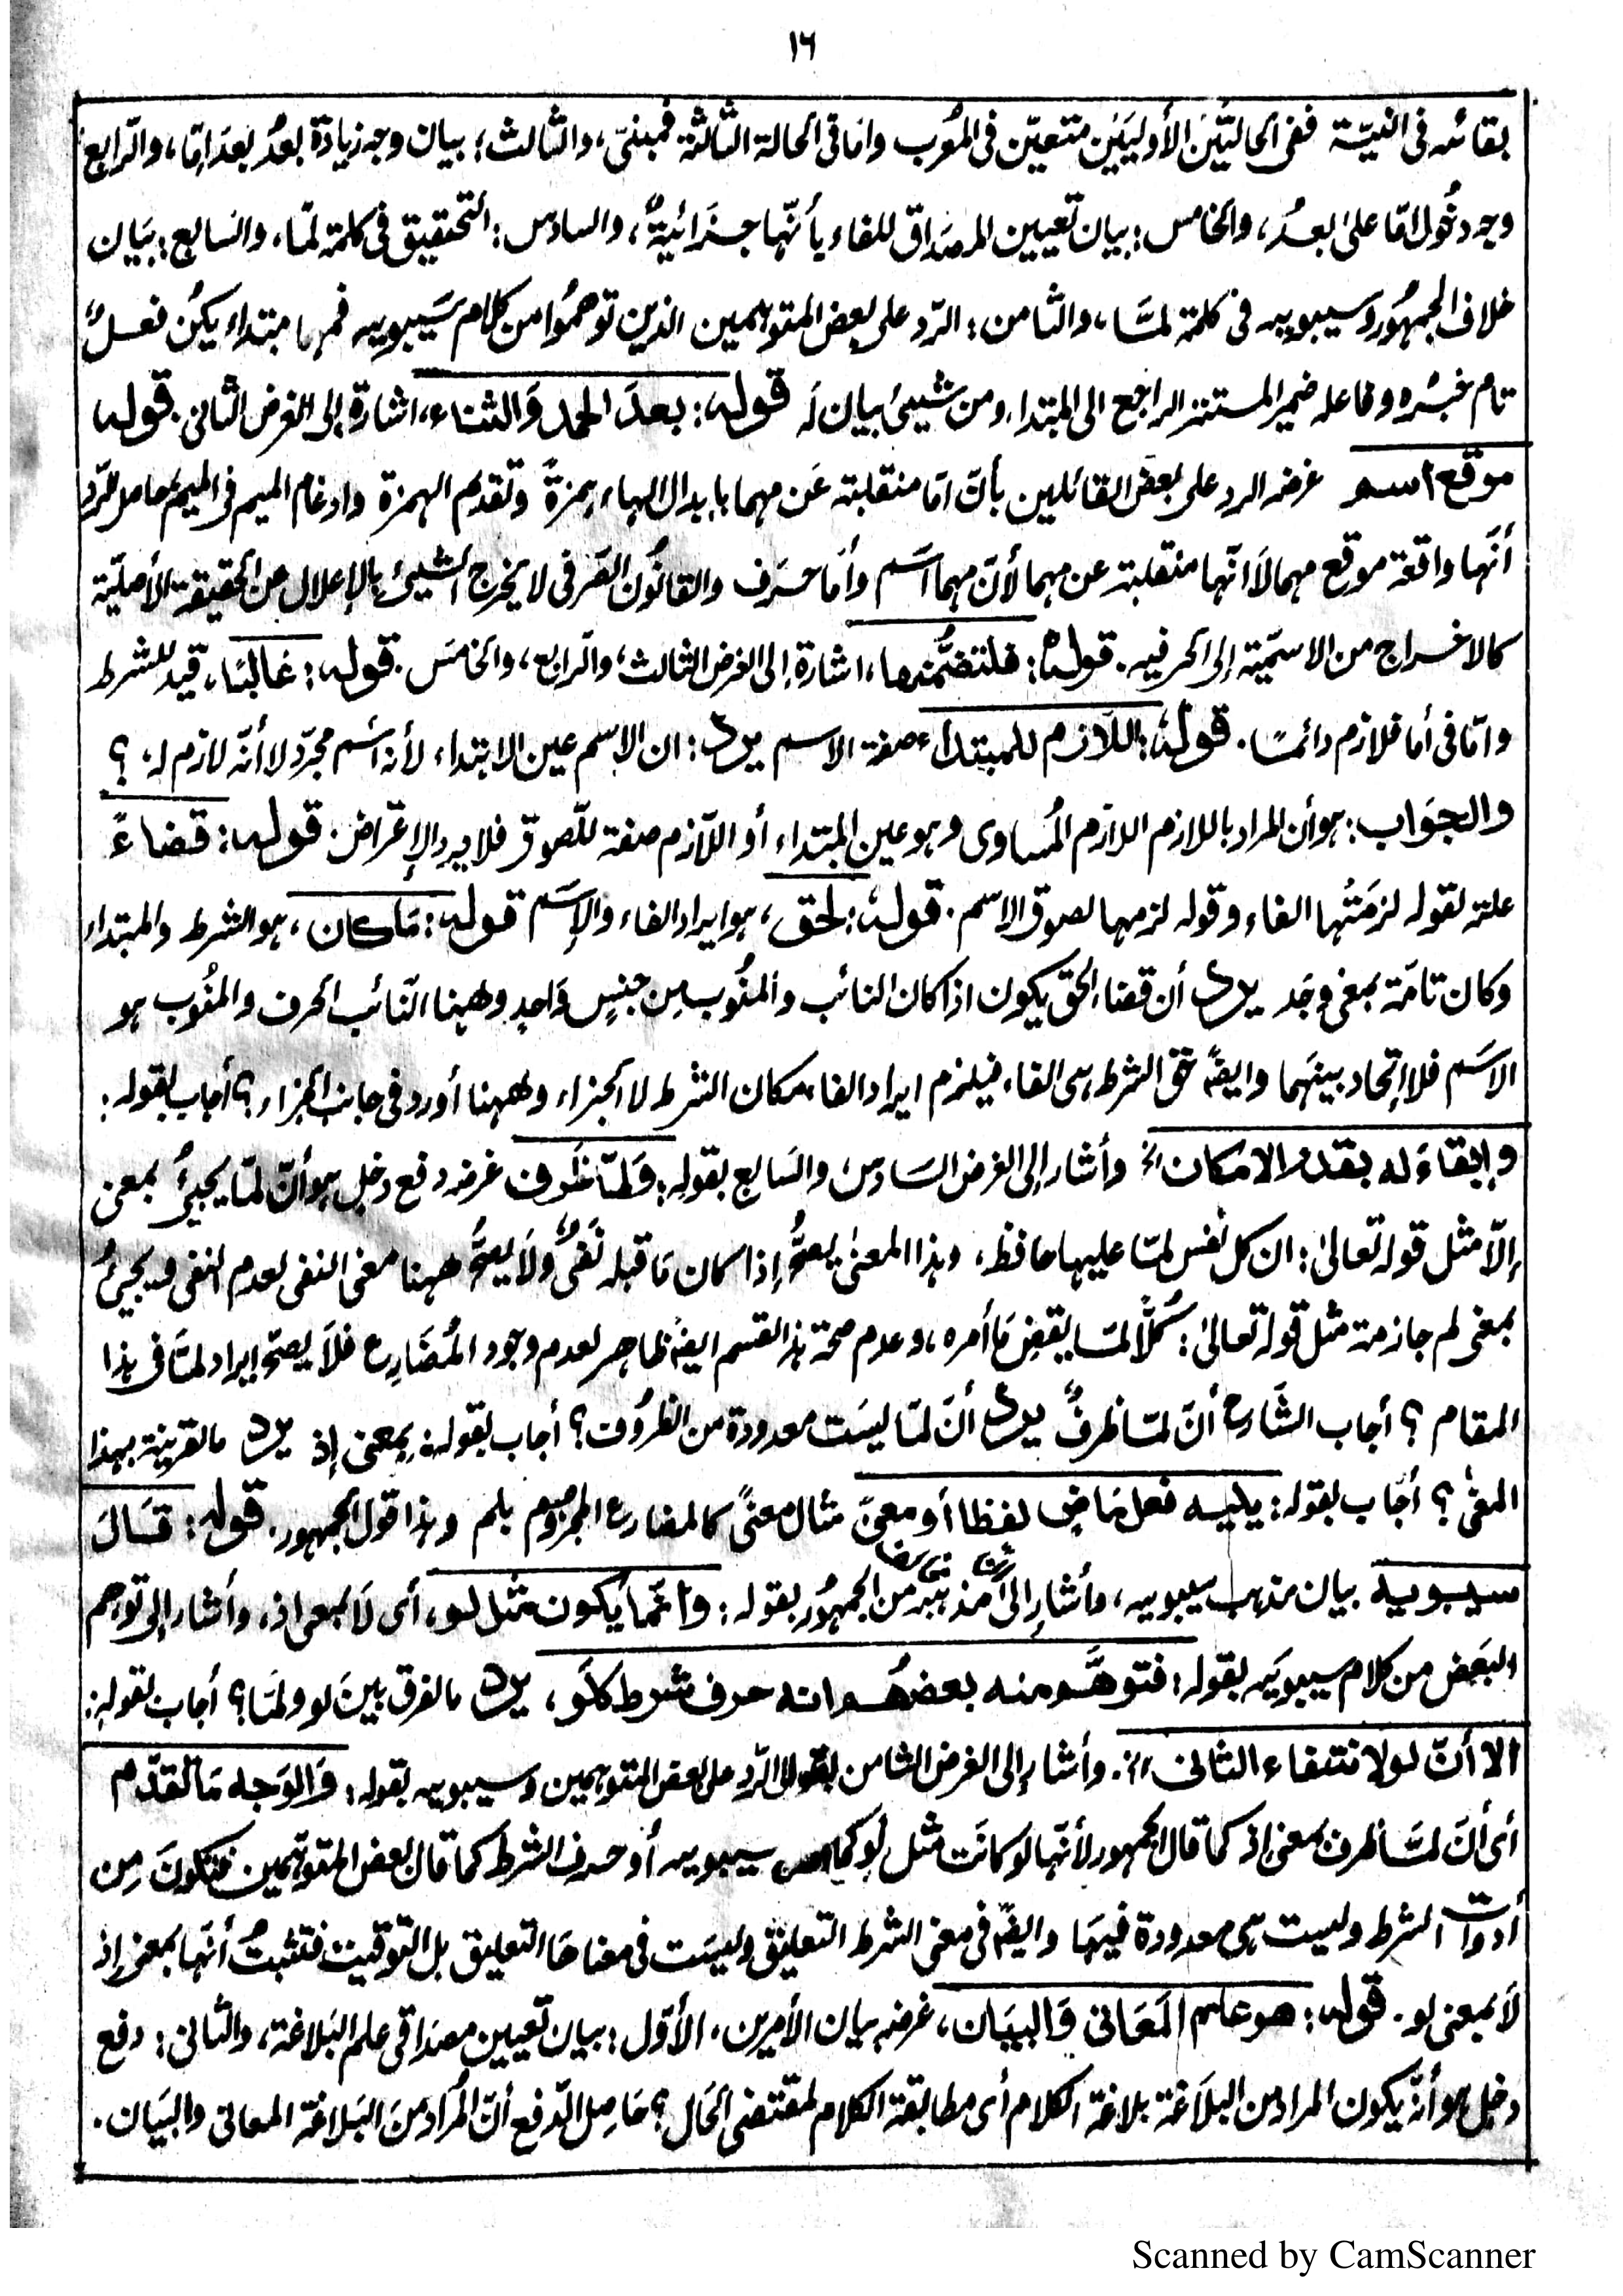 ١٦
بقائه فى النيّة ففى الحالتَين الأوليَين متعيّن فى المعرب وامّا فى الحالة الثّالثة فمبنىّ، والثّالث؛ بيان وجه زيادة بعدُ بعد امّا، والرّابع
وجه دخُول امّا علىٰ بعدُ، والخامس: بيان تعيين المصداق للفاء بأنّها جزائيةٌ، والسادس: التحقيق فى كلمة لمّا، والسابع: بيان
خلاف الجمهُور وسيبويه فى كلمة لمَّا، والثامن: الرّد على بعض المتوهمين الذين توهمُوا من كلام سَيبويه فمهما مبتداء يكن فعلٌ
تام خبرُه وفاعله ضمير المستتر الراجع الى المبتداء ومن شيئ بيان لہ قوله: بعدَ الحمد وَالثناء، اشارة إلى الغرض الثانى. قوله
موقع اسم غرضه الرد على بعض القائلين بأنّ امّا منقلبة عن مهما بابدال الهاء همزةً وتقدم الهمزة وادغام الميم فى الميم حاصل الرّد
أنّها واقعة موقع مهما لاَ انّها منقلبة عن مهما لأنّ مهما اسَم وأمّا حرَف والقانُون الصّرفى لا يخرج الشيئ بالإعلال من الحقيقة الأصليّة
كالاخراج من الاسمّية إلى الحرفيه. قولهُ: فلتضمُّنها، اشارة إلى الغرض الثالث، والرّابع، والخامسَ. قوله: غالبًا، قيد للشرط
وامّا فى أما فلازم دائمًا. قولهُ: اللّازم للمبتداء صفة الاسم يرد: ان الإسم عين الابتداء لأنہ اسَم مجرّد لا أنّه لازم لہ ؟
والجوَاب: هو أن المراد باللازم اللازم المُساوى وهو عين المبتداء أو اللّازم صفة للّصوق فلا يرد الإعتراض. قوله: قضاءً
علة لقوله لزمَتْها الفاء وقوله لزمها لصوق الاسم. قولهُ: لحق، هو ايراد الفاء والإسَم قوله: مَا كان، هو الشرط والمبتداء
وكان تامّة بمعنى وجَد يرد أن قضاء الحق يكون اذا كان النائب والمنُوب مِن جنسٍ وَاحدٍ وههنا النّائب الحرف والمنُوب هو
الاسَم فلا إتحاد بينهما وايضًا حق الشرط هى الفاء فيلزم ايراد الفاء مكان الشرط لا الجزاء وههنا أورد فى جانب الجزاء؟ أجاب بقوله:
وإبقاءً له بقدر الامكان الخ وأشار إلى الغرض السَادس والسَابع بقوله: وَلمّا ظَرف غرضه دفع دخل هو أنّ لمّا يجيئُ بمعنى
إلّا مثل قوله تعالىٰ: ان كل نفس لمّا عليها حافظ، وهذا المعنىٰ يصحُّ إذا كان مَا قبله نَفىٌ ولاَ يصحُّ ههنا معنى النفى لعدم النفى ويجيئُ
بمعنى لم جازمة مثل قوله تعالىٰ: كُلًّا لمّا يقضِ مَا أمره، وعدم صحة هذا القسم ايضًا ظاهر لعدم وجود المُضَارِع فلاَ يصحّ ايراد لمَّا فى هذا
المقام ؟ أجاب الشّارح أنّ لمّا ظرفٌ يرد أنَّ لمّا ليسَت معدودة من الظرُوف؟ أجاب بقولہٖ بمعنى إذ يرد ما لقرينة بهذا
المعنىٰ ؟ أجَاب بقوله: يليه فعل مَاضٍ لفظا أو معنىً مثال معنًى كالمضارع المجزوم بلم وهذا قول الجمهور. قوله: قَالَ
سيبويه بيان مذهب سيبويه، وأشار إلى مذهبه من الجمهُور بقوله: وانّما يكون مثل لو، أى لاَ بمعنى اذ، وأشار إلى توهم
البَعض من كلام سيبويَه بقوله: فتوهَّم منه بعضُهُم انه حرف شرط كلَو، يرد ما لفرق بينَ لو ولمّا؟ أجاب بقولهٖ:
الا أنّ لو لانتفاء الثانى الخ. وأشار إلى الغرض الثامن الرّد على بعض المتوهمين وسيبويه بقوله: وَالوَجه مَا تقدّم
أى أنّ لمَّا ظرف بمعنى إذ كما قال الجمهور لأنّها لو كانَت مثل لَو كما سيبويه أو حرف الشرط كما قال بعض المتوهّمين فتكونَ مِن
أدوات الشرط وليست هى معدودة فيهَا وايضًا فى معنى الشرط التعليق وليسَت فى معناها التعليق بل التوقيت فتثبتُ أنّها بمعنى إذ
لاَ بمعنى لو. قوله: هو علم المَعَانى وَالبيَان، غرضه بيان الأمرين. الأوّل: بيان تعيين مصدَاقى علم البَلاغة، والثانى: دفع
دخل هو أنّه يكون المراد من البلاَغة بلاغة الكلام أى مطابقة الكلام لمقتضى الحَال؟ حَاصل الدّفع أنّ المُراد منَ البَلاغة المعانى والبيَان.
Scanned by CamScanner